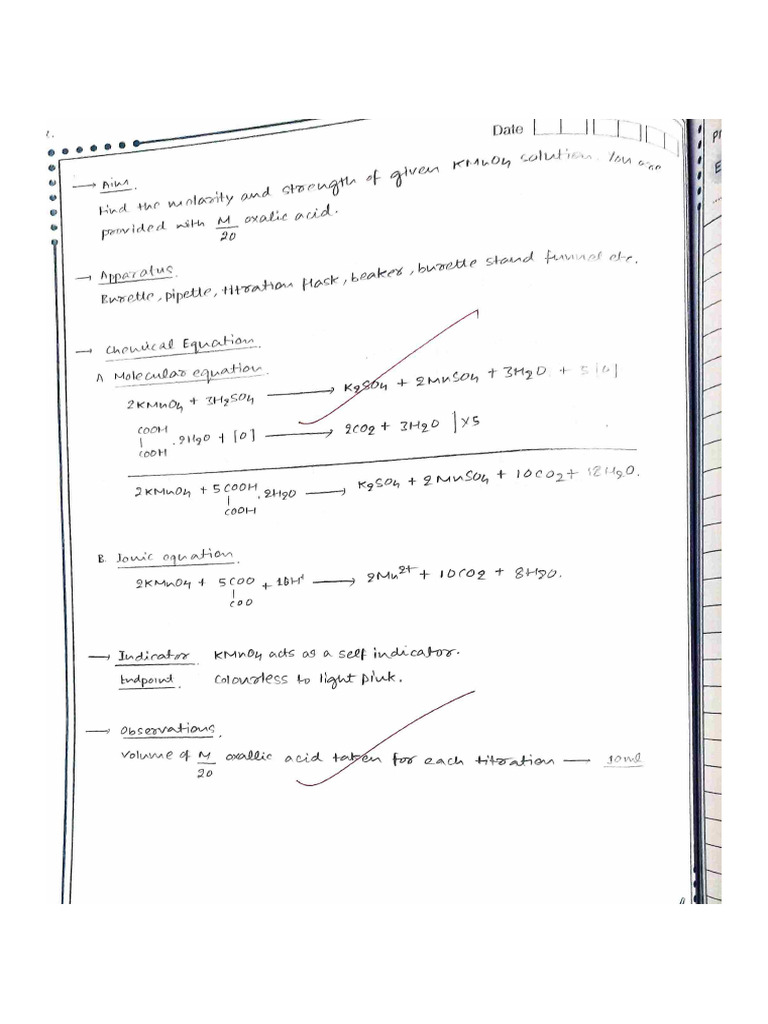 Date
→ Aim.
Find the molarity and strength of given KMnO4 solution. You are
provided with M/20 oxalic acid.
→ Apparatus.
Burette, pipette, titration flask, beaker, burette stand funnel etc.
→ Chemical Equation.
A Molecular equation.
2KMnO4 + 3H2SO4 → K2SO4 + 2MnSO4 + 3H2O + 5[O]
COOH
| .2H2O + [O] → 2CO2 + 3H2O ] x5
COOH
2KMnO4 + 5COOH .2H2O → K2SO4 + 2MnSO4 + 10CO2 + 18H2O.
|
COOH
B. Ionic equation.
2KMnO4 + 5COO + 16H+ → 2Mn2+ + 10CO2 + 8H2O.
|
COO
→ Indicator. KMnO4 acts as a self indicator.
Endpoint. Colourless to light pink.
→ Observations.
Volume of M/20 oxallic acid taken for each titration — 10ml